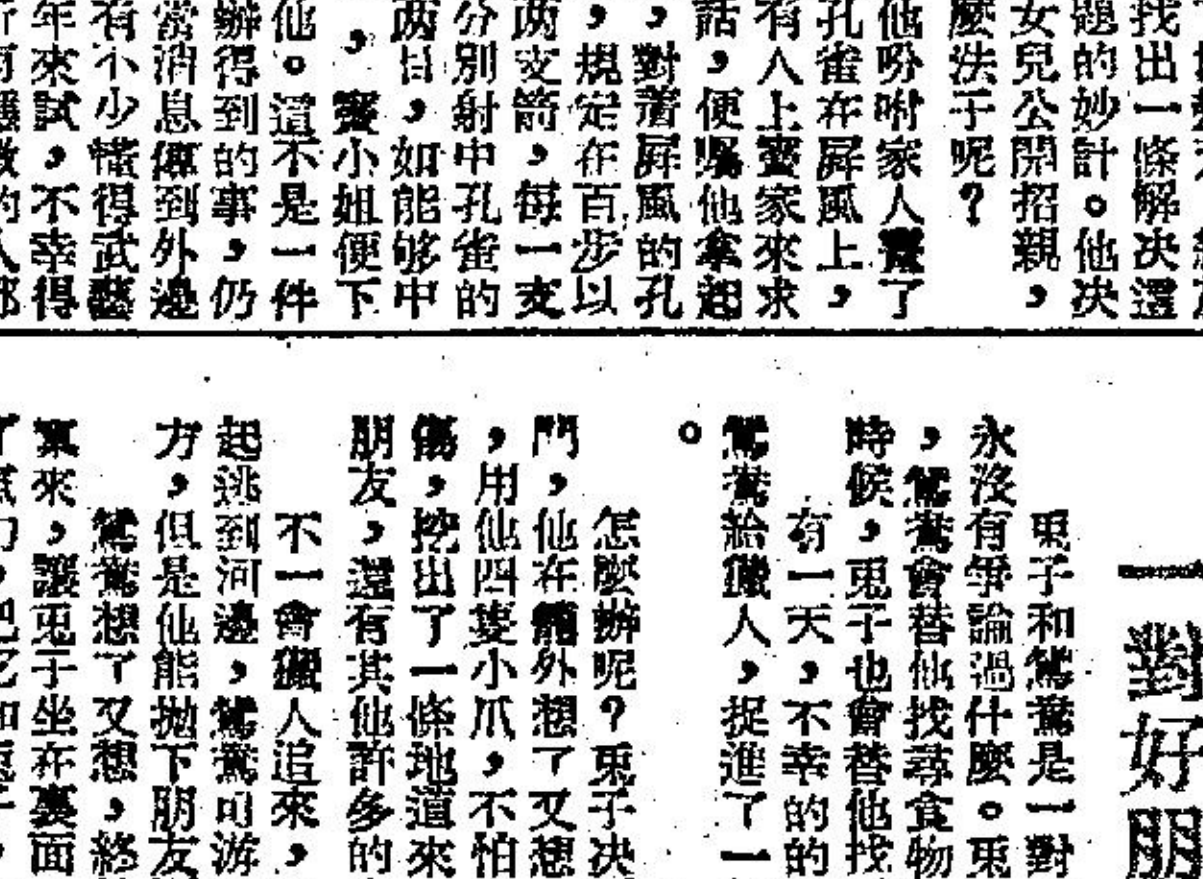 找出一條解决這
題的妙計。他决
女兒公開招親，
麼法子呢？
他吩咐家人賣了
孔雀在屛風上，
有人上竇家來求
話，便囑他拿起
，對着屛風的孔
，規定在百步以
两支箭，每一支
分別射中孔雀的
两目，如能够中
，竇小姐便下
他。這不是一件
辦得到的事，仍
當消息傳到外邊
有不少懂得武藝
年來試，不幸得
一對好朋
兎子和鴛鴦是一對
永沒有爭論過什麼。兎
，鴛鴦會替他找尋食物
時候，兎子也會替他找
有一天，不幸的的
鴛鴦給獵人，捉進了一
。
怎麼辦呢？兎子决
門，他在籠外想了又想
，用他四隻小爪，不怕
傷，挖出了一條地道來
朋友，還有其他許多的
不一會獵人追來，
起逃到河邊，鴛鴦可游
方，但是他能拋下朋友
鴛鴦想了又想，終
來，讓兎子坐在裏面